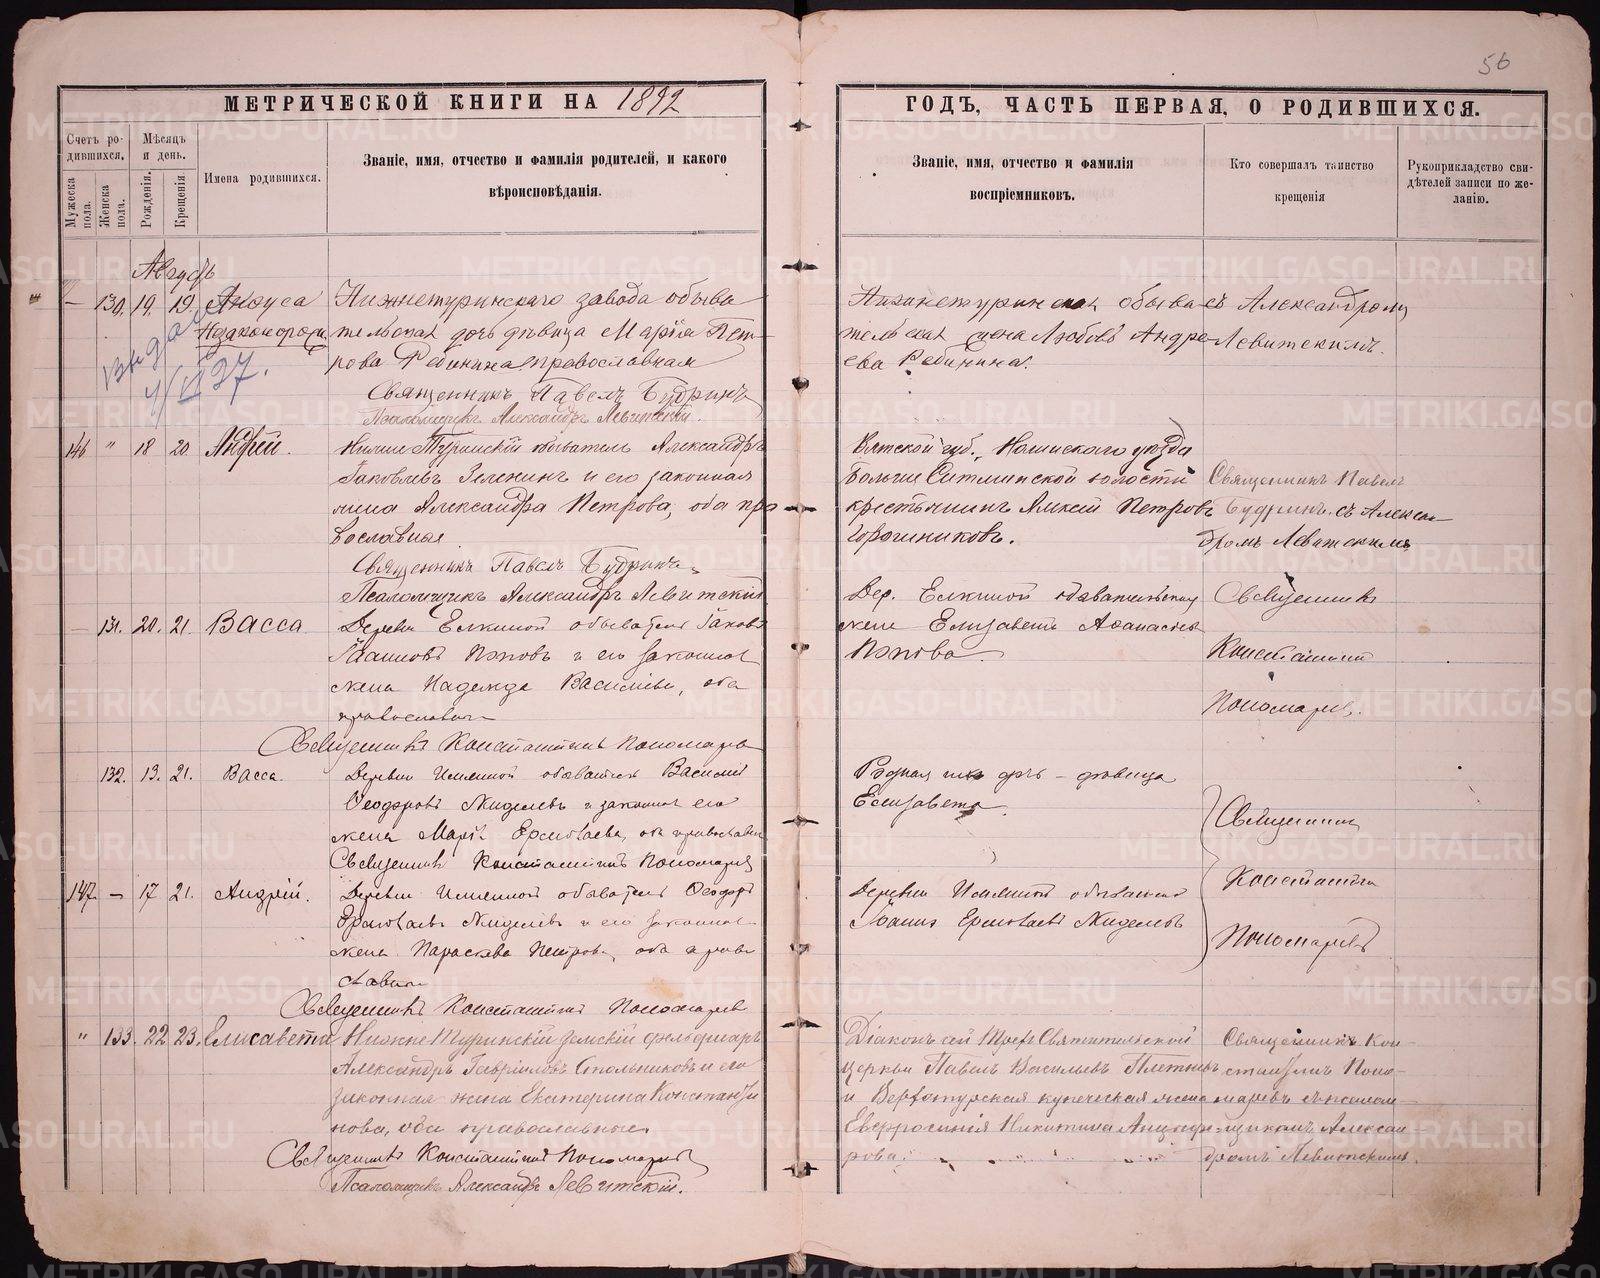 56
МЕТРИЧЕСКОЙ КНИГИ НА 1892
ГОДЪ, ЧАСТЬ ПЕРВАЯ, О РОДИВШИХСЯ.
Счетъ родившихся.
Мужеска пола.
Женска пола.
Мѣсяцъ и день.
Рожденія.
Крещенія
Имена родившихся.
Званіе, имя, отчество и фамилія родителей, и какого
вѣроисповѣданія.
Званіе, имя, отчество и фамилія
воспріемниковъ.
Кто совершалъ таинство
крещенія
Рукоприкладство сви-
дѣтелей записи по же-
ланію.
Августъ
— 130. 19. 19. Анфуса Нижнетуринскаго завода обыва
тельская дочь дѣвица Марія Пет-
рова Рябинина, православная
Священникъ Павелъ Будринъ
Псаломщикъ Александръ Левитскій.
Незаконорожд
выдано
37.
Нижнетуринская обыва
тельская жена Любовь Андре
ева Рябинина.
съ Александромъ
Левитскимъ.
146 " 18 20 Андрей. Нижне Туринскій обыватель Александръ
Яковлевъ Зеленинъ и его законная
жена Александра Петрова, оба пра
вославные
Священникъ Павелъ Будринъ
Псаломщикъ Александръ Левитскій
Вятской губ., Нолинскаго уѣзда
Больше Ситминской волости
крестьянинъ Алексій Петровъ
Священникъ Павелъ
Будринъ съ Алексан-
дромъ Левитскимъ
— 131. 20. 21. Васса Деревни Елкиной обыватель Іаковъ
Поповъ и его законная
жена Надежда Васильева, оба
православные
Священникъ Константинъ Пономаревъ
Дер. Елкиной обывательская
жена Елизавета Афанасьева
Попова.
Священникъ
Константинъ
Пономаревъ.
132. 13. 21. Васса. Деревни обыватель Василій
Ѳеодоровъ и законная его
жена Марія оба православные
Священникъ Константинъ Пономаревъ
Родная ихъ дочь - дѣвица
Елизавета
Священникъ
Константинъ
Пономаревъ
147. — 17 21. Андрей. Деревни обыватель Ѳеодоръ
и его законная
жена Параскева Петрова, оба право
славные
Священникъ Константинъ Пономаревъ
Деревни обыватель
Іоаннъ
" 133. 22 23. Елисавета Нижне Туринскій земскій фельдшеръ
Александръ Гавріиловъ Стольниковъ и его
законная жена Екатерина Константи
нова, оба православные.
Священникъ Константинъ Пономаревъ
Псаломщикъ Александръ Левитскій.
Діаконъ сей Трехъ Святительской
церкви Павелъ Васильевъ Плетневъ
и Верхотурская купеческая жена
Евфросинія Никитина
рова.
Священникъ Кон-
стантинъ Поно-
маревъ съ псалом-
щикомъ Алексан-
дромъ Левитскимъ.
METRIKI.GASO-URAL.RU